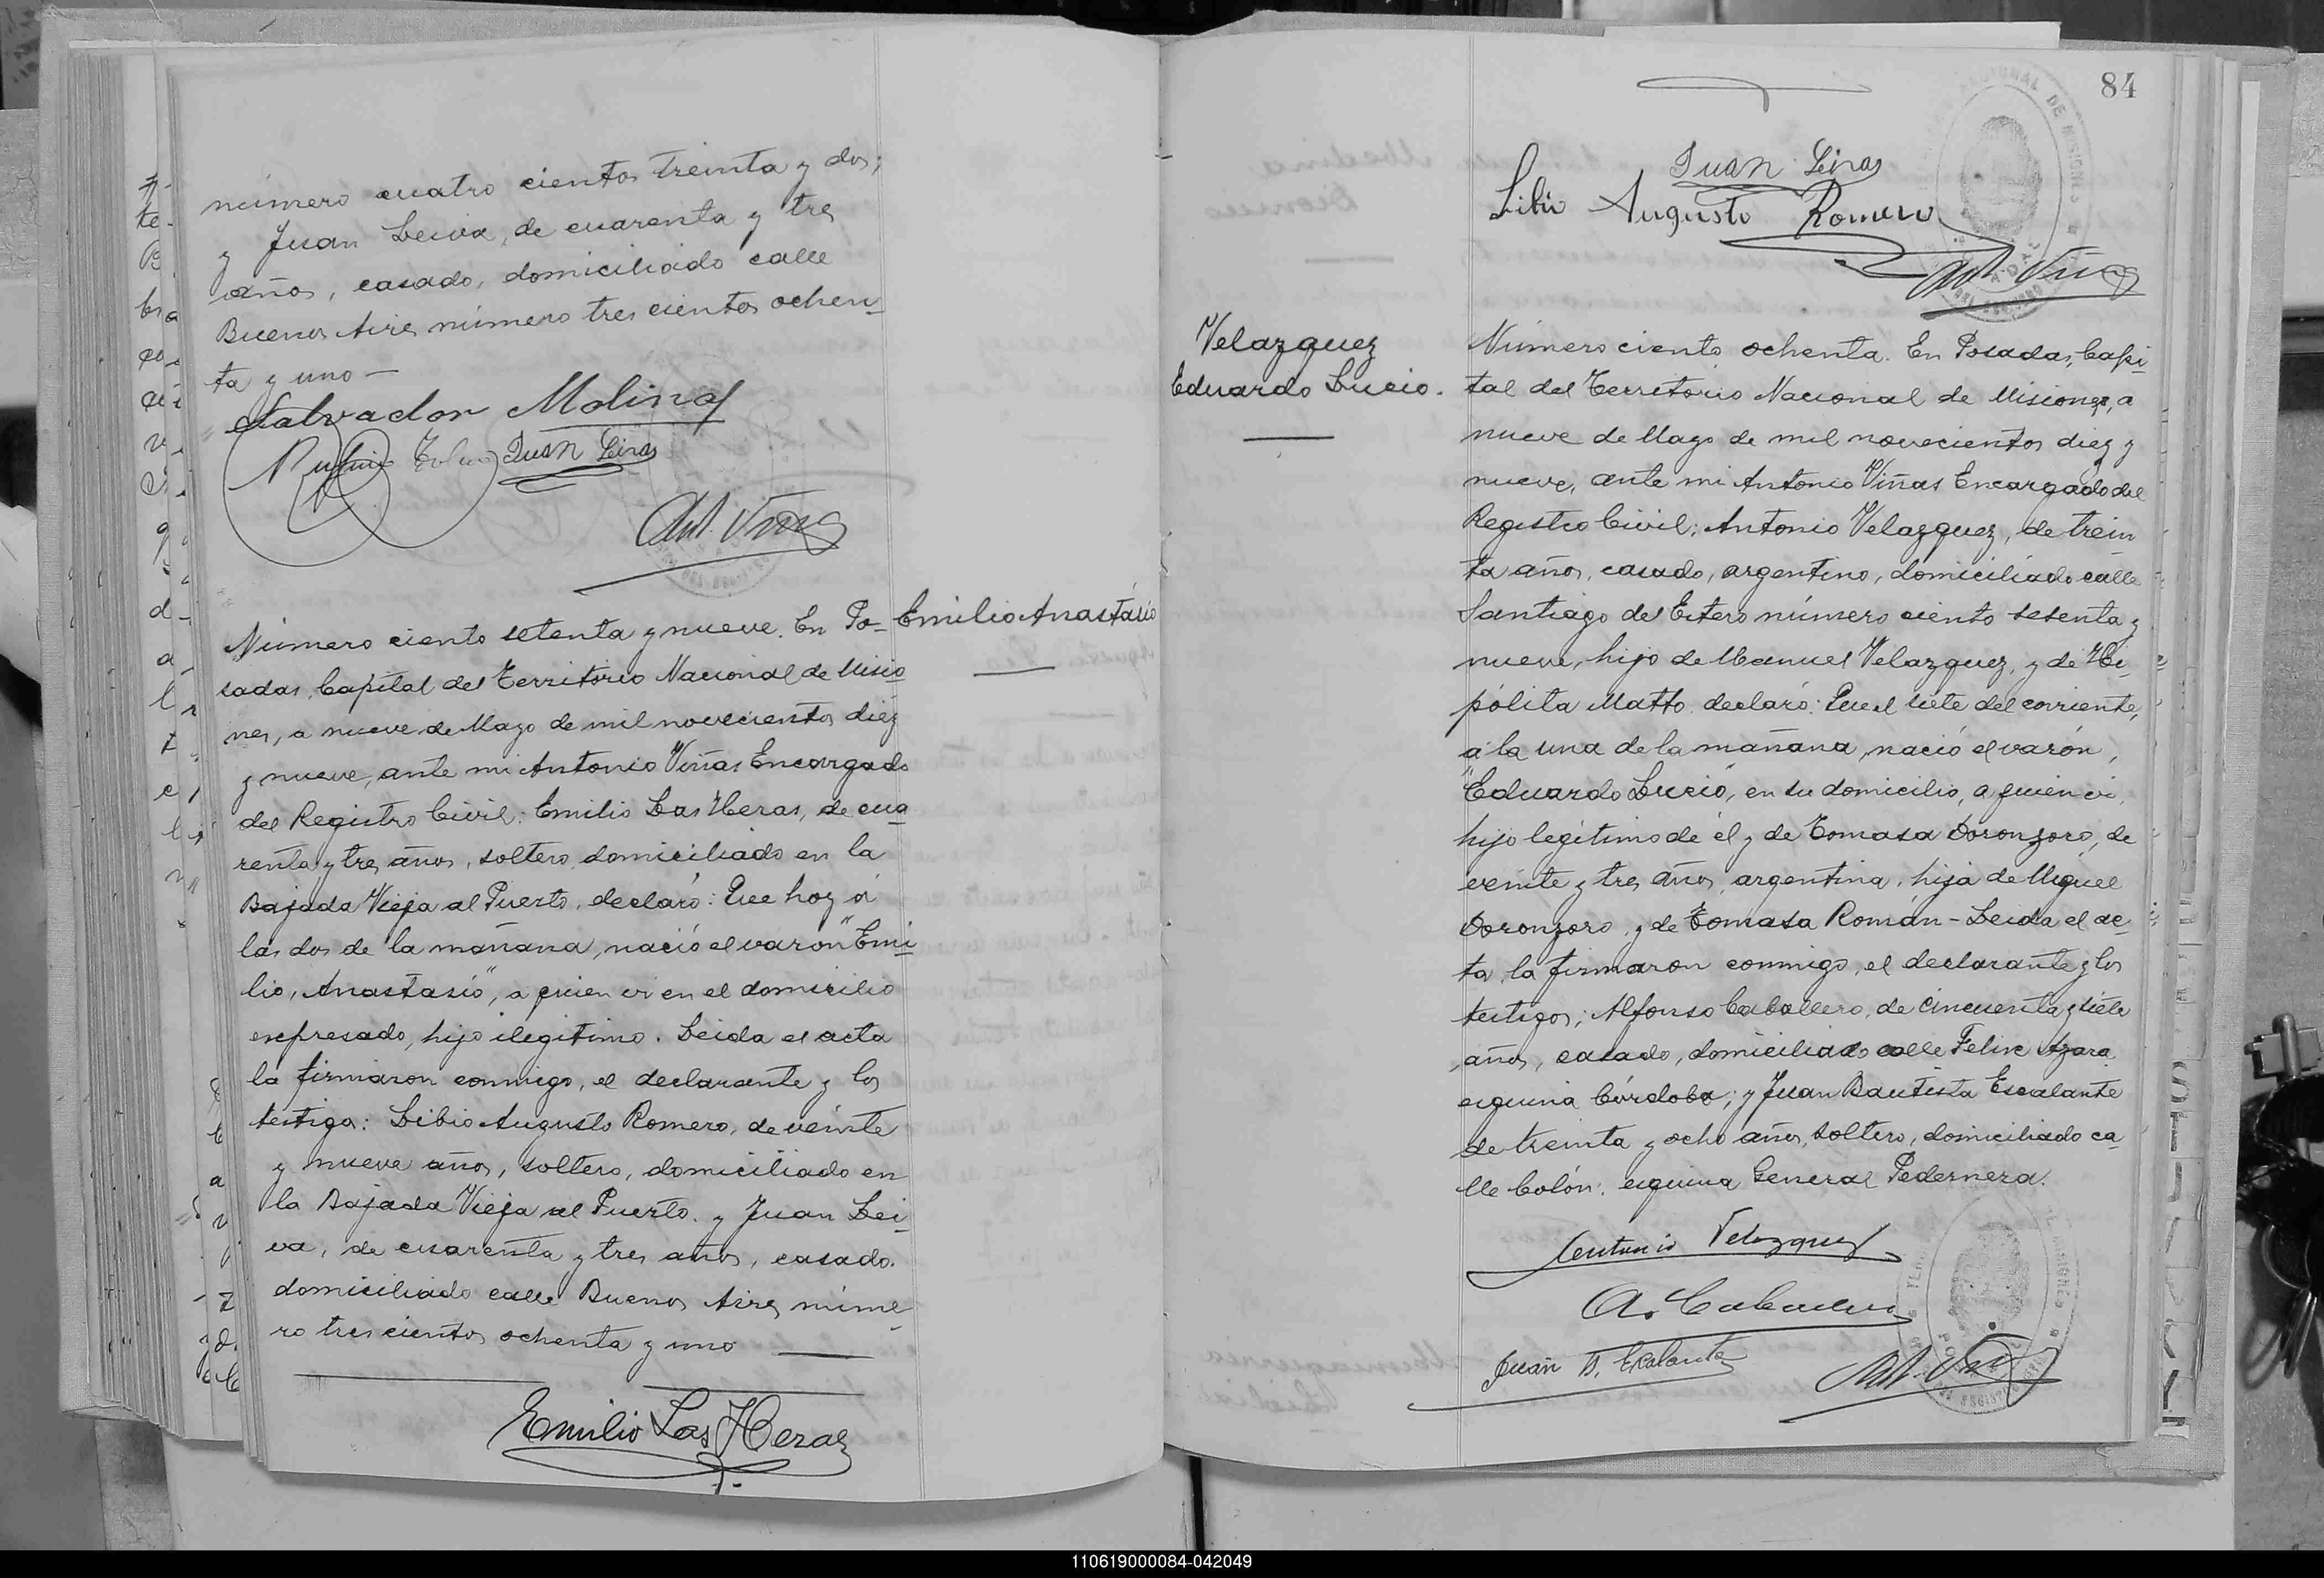 número cuatro cientos treinta y dos;
y Juan Leiva, de cuarenta y tres
años, casado, domiciliado calle
Buenos Aires número tres cientos ochen
ta y uno —
Salvador Molinas
Juan Leiva
Ant. Viñas
Número ciento setenta y nueve. En Po-
sadas, Capital del Territorio Nacional de Misio
nes, a nueve de Mayo de mil novecientos diez
y nueve, ante mi Antonio Viñas Encargado
del Registro Civil: Emilio Las Heras, de cua
renta y tres años, soltero, domiciliado en la
Bajada Vieja al Puerto, declaró: Que hoy á
las dos de la mañana, nació el varón "Emi
lio, Anastasio", a quien vi en el domicilio
expresado, hijo ilegitimo. Leida el acta
la firmaron conmigo, el declarante y los
testigos: Libio Augusto Romero, de veinte
y nueve años, soltero, domiciliado en
la Bajada Vieja al Puerto. y Juan Lei
va, de cuarenta y tres años, casado.
domiciliado calle Buenos Aires, núme
ro tres cientos ochenta y uno —
Emilio Las Heras
Emilio Anastásio
84
Juan Leiva
Libio Augusto Romero
Ant. Viñas
Velazquez
Eduardo Lucio.
Número ciento ochenta. En Posadas, Capi
tal del Territorio Nacional de Misiones, a
nueve de Mayo de mil novecientos diez y
nueve, ante mi Antonio Viñas Encargado del
Registro Civil; Antonio Velazquez, de trein
ta años, casado, argentino, domiciliado calle
Santiago del Estero número ciento sesenta y
nueve, hijo de Manuel Velazquez, y de Hi-
pólita Matto. declaró: Que el siete del corriente,
á la una de la mañana, nació el varón,
"Eduardo Lucio", en su domicilio, a quien vi,
hijo legítimo de él y de Tomasa Doronzoro, de
veinte y tres años, argentina, hija de Miguel
Doronzoro, y de Tomasa Román - Leida el ac-
ta, la firmaron conmigo, el declarante y los
testigos; Alfonso Caballero, de cincuenta y siete
años, casado, domiciliado calle Felix Azara
esquina Córdoba; y Juan Bautista Escalante
de treinta y ocho años, soltero, domiciliado ca
lle Colón, esquina General Pedernera.
Antonio Velazquez
A. Caballero
Juan B. Escalante
Ant. Viñas
110619000084-042049